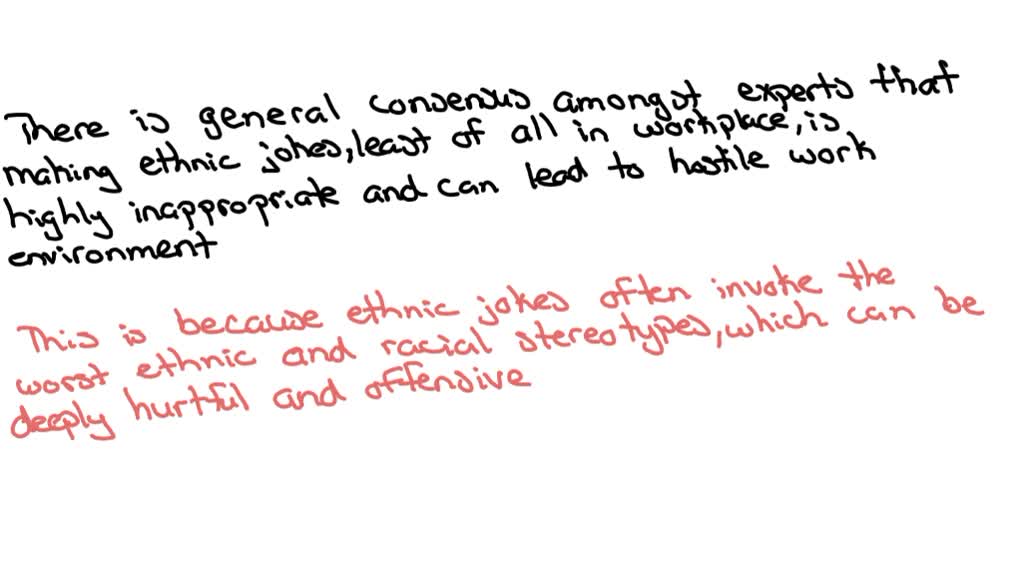 There is general consensus amongst experts that
making ethnic jokes, least of all in workplace, is
highly inappropriate and can lead to hostile work
environment
This is because ethnic jokes often invoke the
worst ethnic and racial stereotypes, which can be
deeply hurtful and offensive